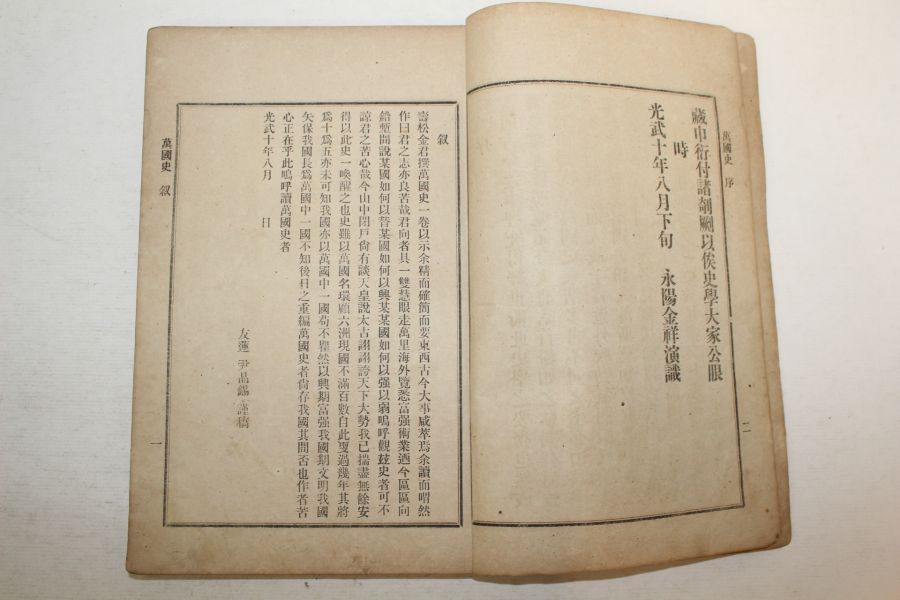 萬國史 序 二
藏中衍付諸剞劂以俟史學大家公眼
時
光武十年八月下旬 永陽金祥演識
叙
壽松金君撰萬國史一卷以示余精而確簡而要東西古今大事咸萃焉余讀而喟然
作曰君之志亦良苦哉君向者具一雙慧眼走萬里海外覽悉富强術業迺今區區向
鉛塹間說某國如何以昔某國如何以興某某國如何以强以弱嗚呼觀玆史者可不
諒君之苦心哉今山中閉戶尙有談天皇說太古詡詡誇天下大勢我已揣盡無餘安
得以此史一喚醒之也史雖以萬國名環顧六洲現國不滿百數自此更過幾年其將
爲十爲五亦未可知我國亦以萬國中一國苟不瞿然以興期富强我國期文明我國
矢保我國長爲萬國中一國不知後日之重編萬國史者尙存我國其間否也作者苦
心正在乎此嗚呼讀萬國史者
光武十年八月 日
友蓮 尹晶錫 謹稿
萬國史 叙 一